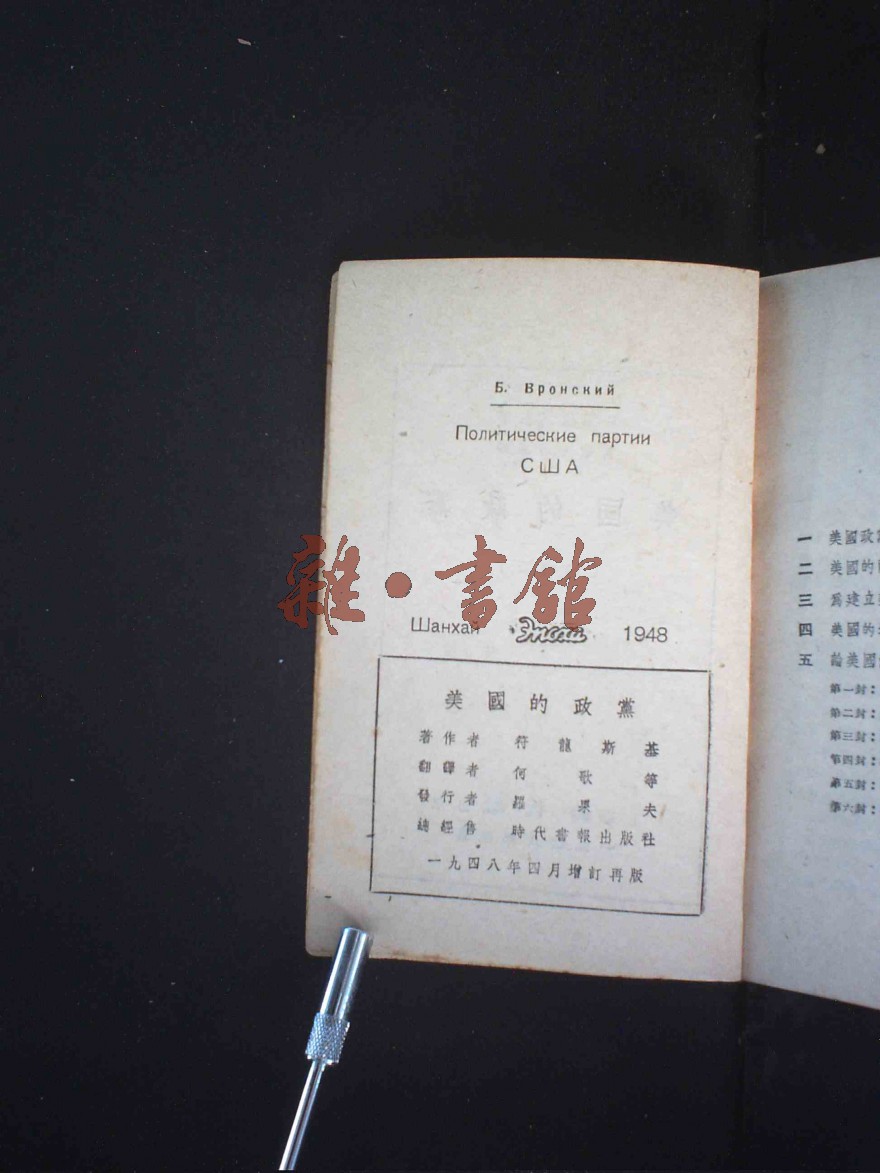 Б. Вронский
Политические партии
США
雜·書館
Шанхай Эпоха 1948
美國的政黨
著作者 符龍斯基
翻譯者 何歌等
發行者 羅果夫
總經售 時代書報出版社
一九四八年四月增訂再版
一 美國政
二 美國的
三 爲建立
四 美國的
五 論美國
第一封：
第二封：
第三封：
第四封：
第五封：
第六封：